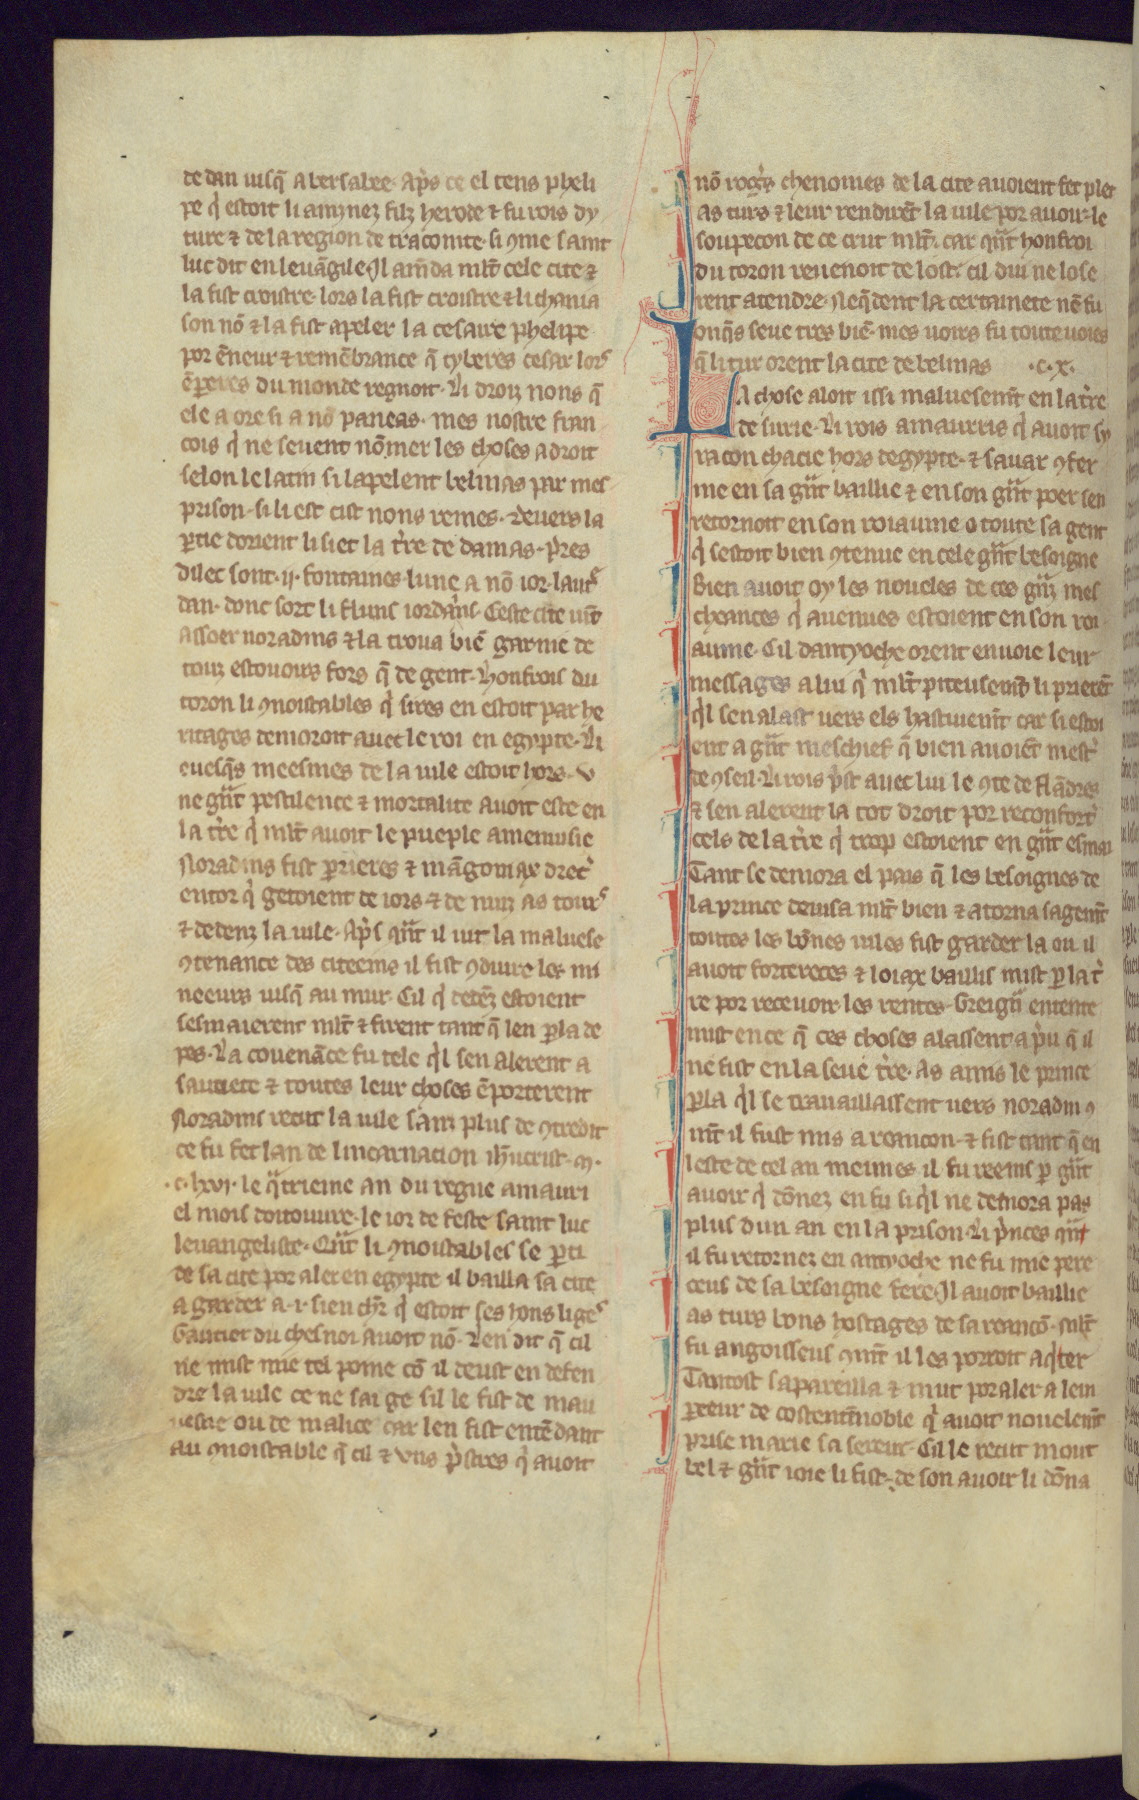 de dan iusq̃ a bersabee. ap̃s ce el tens pheli
pe q̇ estoit li ainznez filz herode ⁊ fu rois dy
ture ⁊ de la region de traconite. si ꝯme saint
luc dit en leuãgile. Jl am̃da ml̃t cele cite ⁊
la fist croistre. lors la fist croistre ⁊ li chania
son nõ ⁊ la fist apeler la cesaire phelipe
por ẽneur ⁊ remẽbrance q̃ tyberes cesar lors
ẽꝑeres du monde regnoit. Li droiz nons q̃
ele a ore si a nõ paneas. mes nostre fran
cois q̇ ne seuent nõmer les choses a droit
selon le latin si lapelent belinas par mes
prison. si li est cist nons remes. deuers la
ꝑtie dorient li siet la t̃re de damas. pres
dilec sont .ij. fontaines. lune a nõ ior. lautˢ
dan. donc sort li fluns iordains. Ceste cite uĩt
assoer noradins ⁊ la troua biẽ garnie de
touz estouoirs fors q̃ de gent. honfrois du
toron li ꝯnoistables q̇ sires en estoit par he
ritages demoroit auec le roi en egypte. Li
euesq̃s meesmes de la uile estoit hors. v
ne gñt pestilence ⁊ mortalite auoit este en
la t̃re q̇ ml̃t auoit le pueple amenuisie
Noradins fist ꝑrieres ⁊ mãgoniax drecˀ
entor q̇ getoient de iors ⁊ de nuiz as tours
⁊ dedenz la uile. Ap̃s qñt il uit la maluese
ꝯtenance des citeeins il fist ꝯduire les mi
neeurs iusq̃ au mur. Cil q̇ dedẽz estoient
sesmaierent ml̃t ⁊ firent tant q̃ len ꝑla de
pes. La couenãce fu tele q̇l sen alerent a
sauuete ⁊ toutes leur choses ẽporterent
Noradins recut la uile sanz plus de ꝯtredit
ce fu fet lan de lincarnacion ih̃ucrist .m.
.c.lxvj. le q̃trieme an du regne amauri
el mois doitouure. le ior de feste saint luc
leuangeliste. Qñt li ꝯnoistables se ꝑti
de sa cite por aler en egypte il bailla sa cite
a garder a .i. sien ch̃r q̇ estoit ses hons liges
Gautier du chesnoi auoit nõ. Len dit q̃ cil
ne mist mie tel peine cõ il deust en defen
dre la uile ce ne sai ge sil le fist de mau
uestie ou de malice car len fist entẽdant
au ꝯnoistable q̃ cil ⁊ vns p̃stres q̇ auoit
nõ rog̃s chenoines de la cite auoient fet plet
as turs ⁊ leur rendirẽt la uile por auoir. le
soupecon de ce crut ml̃t. car qñt honfroi
du toron reuenoit de lost. cil dui ne lose
rent atendre. Neq̃dent la certainete nẽ fu
onq̃s seue tres biẽ. mes uoirs fu toute uoies
q̃ li tur orent la cite de belinas .c.x.
La chose aloit issi maluesem̃t en la t̃re
de surie. Li rois amauris q̇ auoit sy
racon chacie hors degypte. ⁊ sauar ꝯfer
me en sa gñt baillie ⁊ en son gñt poer sen
retornoit en son roiaume o toute sa gent
q̇ sestoit bien ꝯtenue en cele gñt besoigne
Bien auoit oy les noueles de ces gñz mes
cheances q̇ auenues estoient en son roi
aume. Cil dantyoche orent enuoie leur
messages a lui q̇ ml̃t piteusem̃t li prierẽt
q̇l sen alast uers els hastiuem̃t car si estoi
ent a gñt meschief q̃ bien auoiẽt mestˀ
de ꝯseil. Li rois p̃st auec lui le ꝯte de flãdres
⁊ sen alerent la tot droit por reconfortˀ
cels de la t̃re q̇ trop estoient en gñt esmai
Tant se demora el pais q̃ les besoignes de
la prince deuisa ml̃t bien ⁊ atorna sagem̃t
toutes les bõnes uiles fist garder la ou il
auoit forteresces ⁊ loiax baillis mist ꝑ la t̃
re por receuoir les rentes. Greignˀ entente
mist en ce q̃ ces choses alassent a p̃u q̃ il
ne fist en la seue t̃re. As amis le prince
ꝑla q̇l se trauaillassent uers noradin ꝯ
m̃t il fust mis a reancon. ⁊ fist tant q̃ en
leste de cel an meimes il fu reems ꝑ gñt
auoir q̇ dõnez en fu si q̇l ne demora pas
plus dun an en la prison. Li p̃nces qñt
il fu retornez en antyoche ne fu mie pere
ceus de sa besoigne fere. Jl auoit baillie
as turs bons hostages de sa reancõ. ml̃t
fu angoisseus ꝯm̃t il les porroit aq̇ter
Tantost sapareilla ⁊ mut por aler a lem
ꝑereur de costentinoble q̇ auoit nouelem̃t
prise marie sa sereur. Cil le recut mout
bel ⁊ gñt ioie li fist. de son auoir li dõna